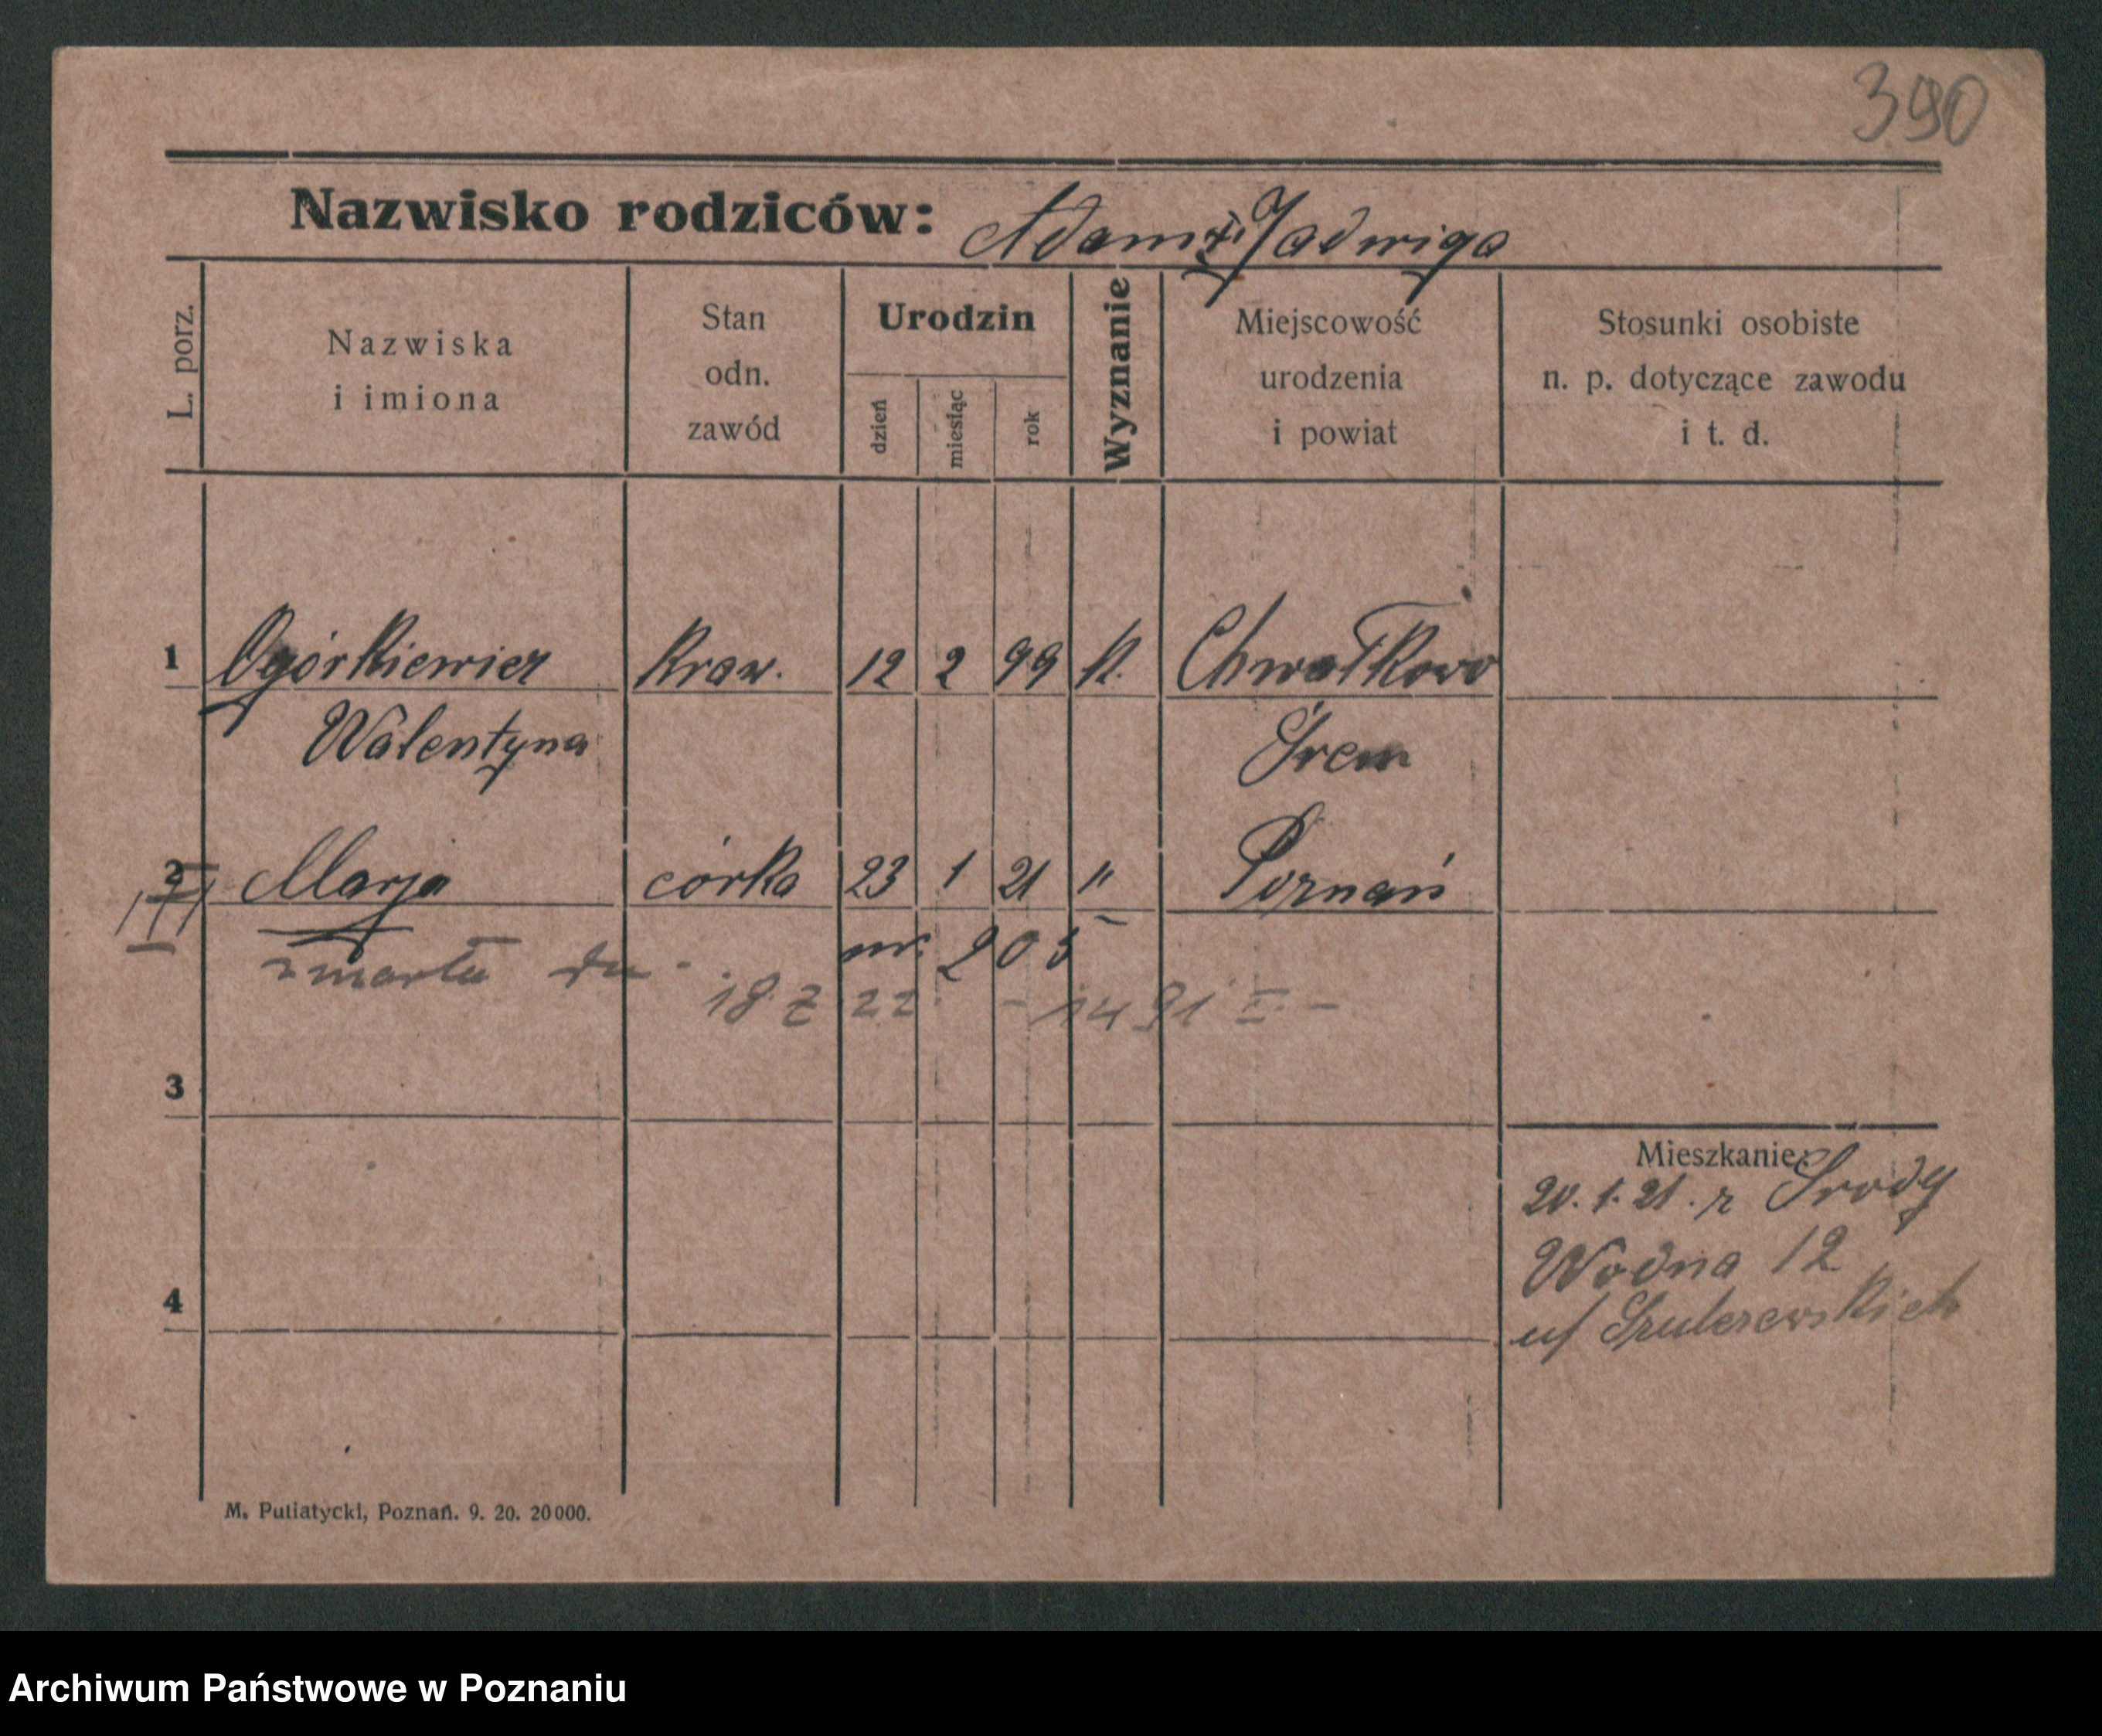 390
Nazwisko rodziców: Adam i Jadwiga
L. porz.
Nazwiska
i imiona
Stan
odn.
zawód
Urodzin
dzień
miesiąc
rok
Wyznanie
Miejscowość
urodzenia
i powiat
Stosunki osobiste
n. p. dotyczące zawodu
i t. d.
1 Ogórkiewicz Kraw. 12 2 99 K. Chwałkowo
Walentyna Śrem
2 Marja córka 23 1 21 " Poznań
nr. 205
zmarła dn.
18 2 22 - 1491
3
Mieszkanie:
20. 1. 21. z Środy
Wodna 12
4
u/ Szulczewskich
M. Putiatycki, Poznań. 9. 20. 20000.
Archiwum Państwowe w Poznaniu